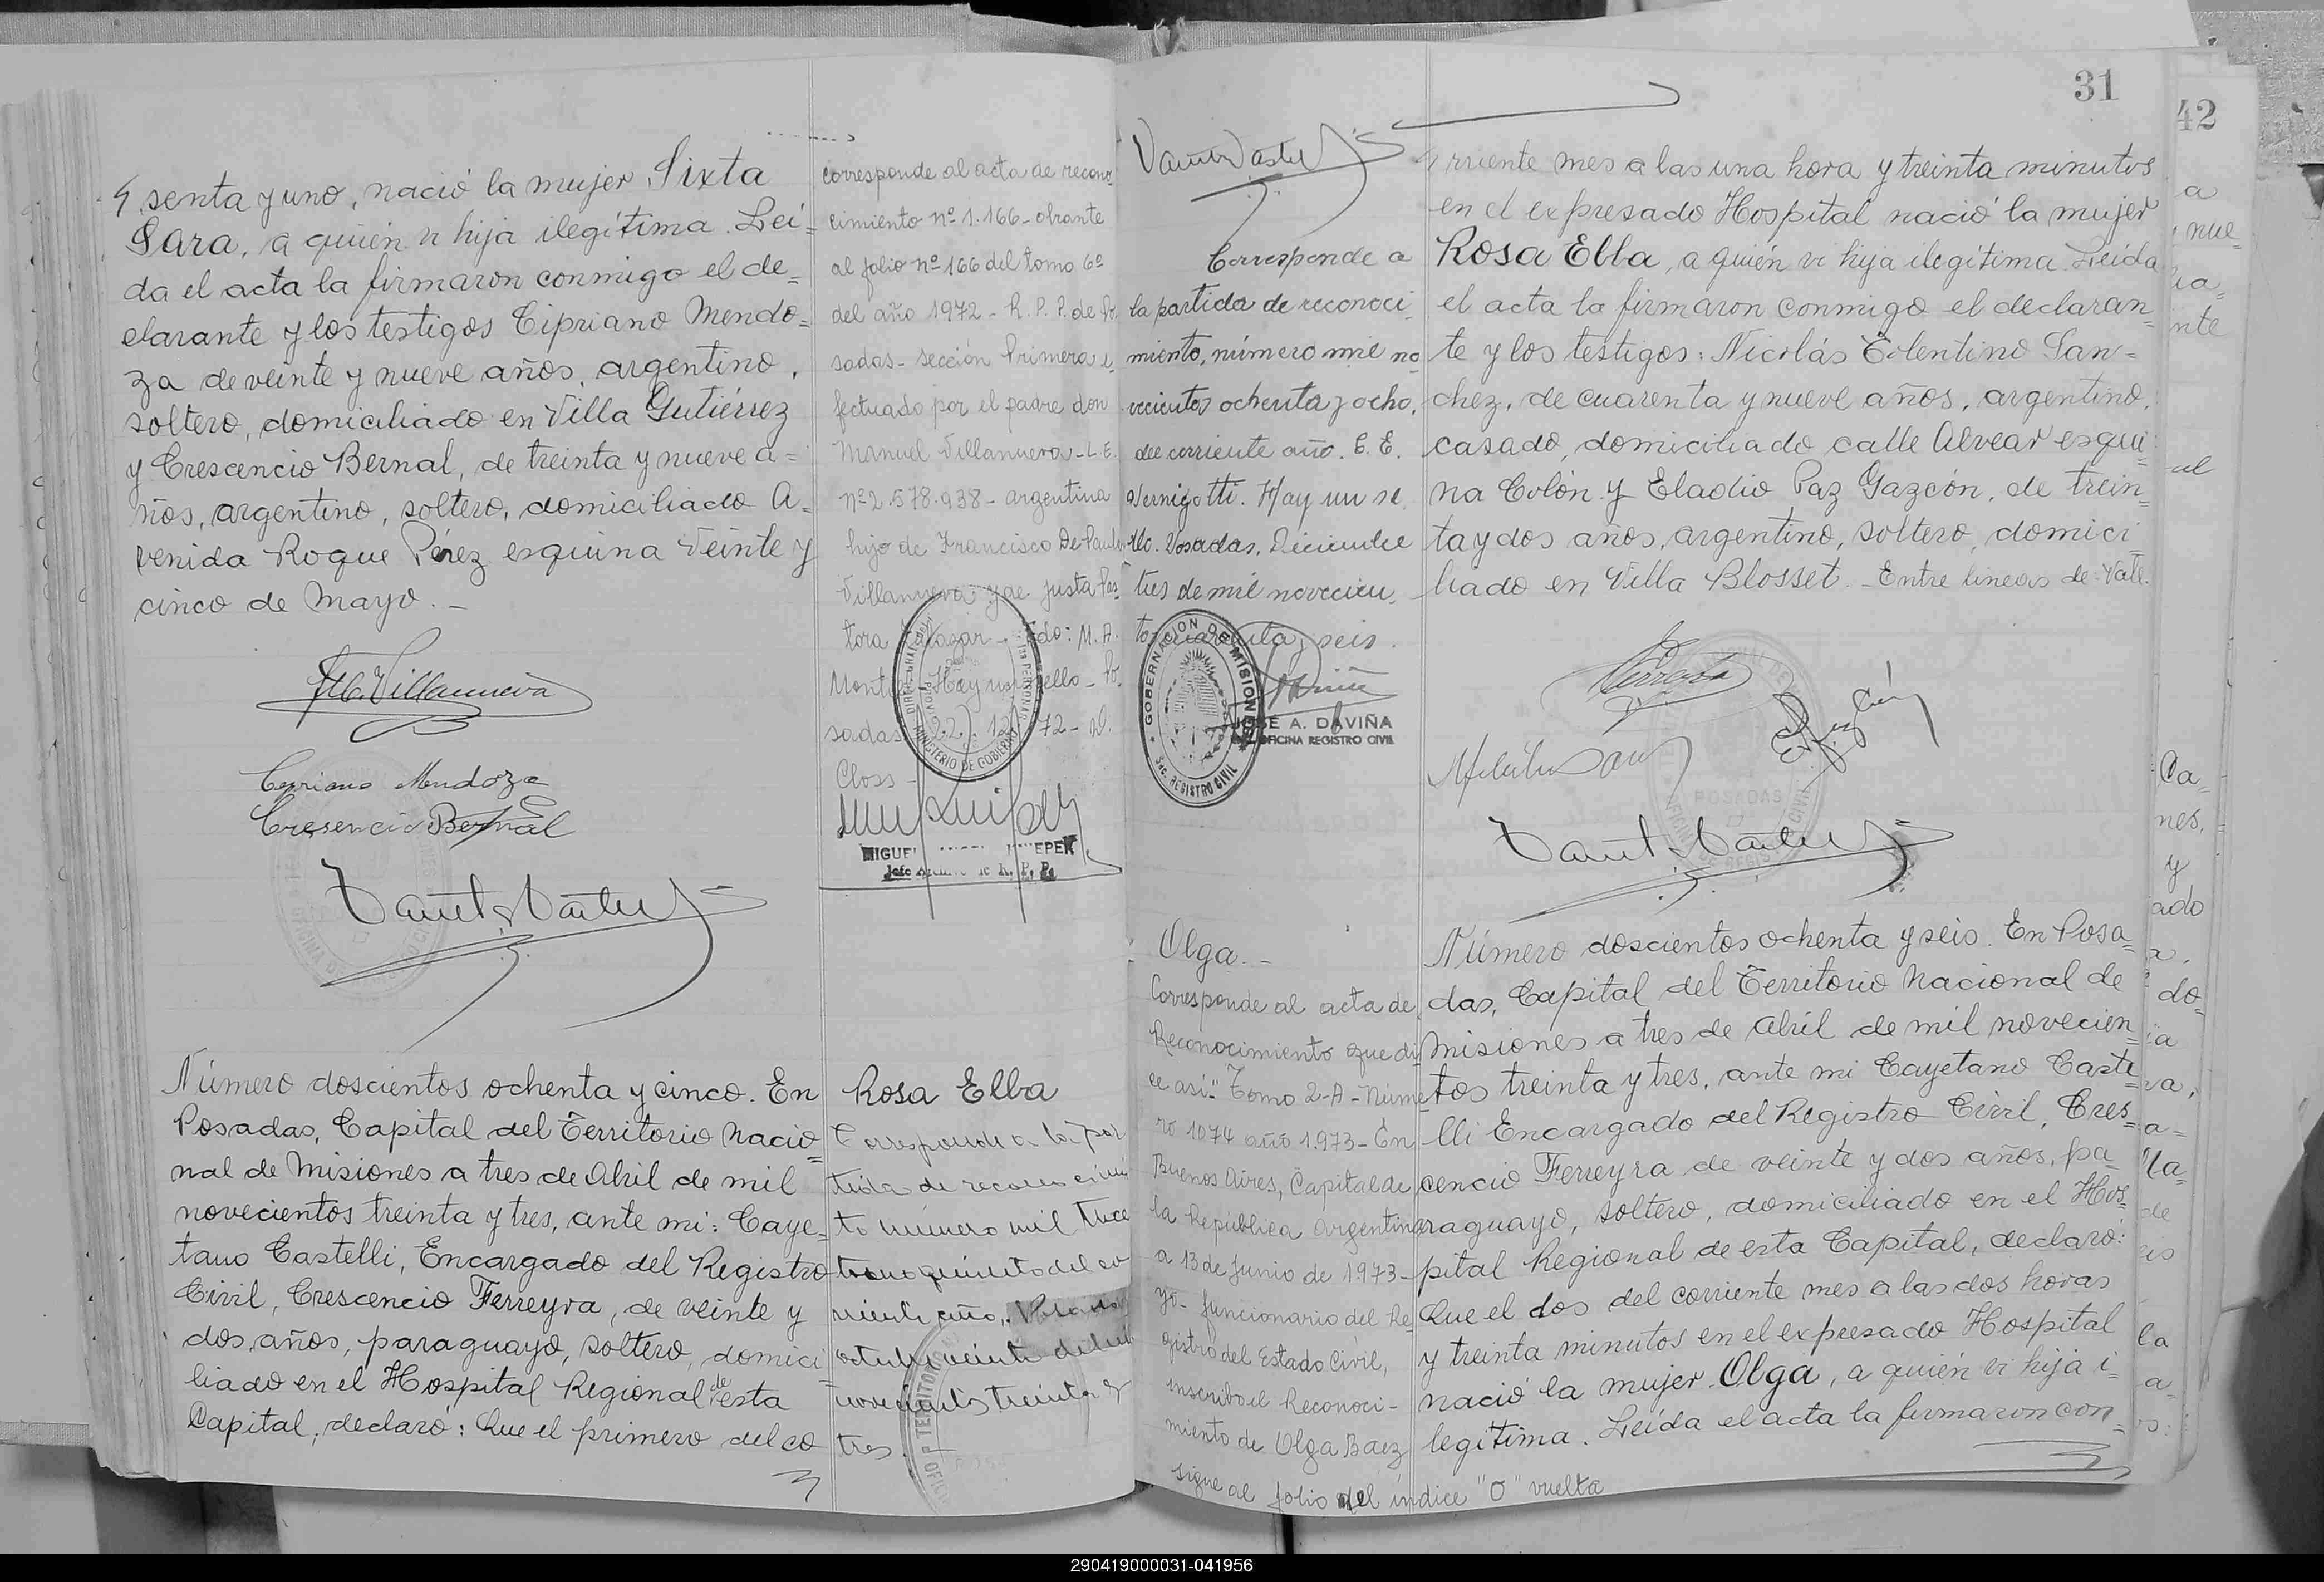 senta y uno, nació la mujer Sixta
Sara, a quién vi hija ilegítima. Leí=
da el acta la firmaron conmigo el de=
clarante y los testigos Cipriano Mendo=
za de veinte y nueve años, argentino,
soltero, domiciliado en Villa Gutiérrez
y Crescencio Bernal, de treinta y nueve a=
ños, argentino, soltero, domiciliado A=
venida Roque Pérez esquina Veinte y
cinco de Mayo. _
Villanueva
Cipriano Mendoza
Cresencio Bernal
Número doscientos ochenta y cinco. En
Posadas, Capital del Territorio Nacio=
nal de Misiones a tres de Abril de mil
novecientos treinta y tres, ante mi: Caye=
tano Castelli, Encargado del Registro
Civil, Crescencio Ferreyra, de veinte y
dos, años, paraguayo, soltero, domici=
liado en el Hospital Regional de esta
Capital, declaró: Que el primero del co
corresponde al acta de recono=
cimiento nº 1.166 - obrante
al folio nº 166 del tomo 6º
del año 1972 - R. P. P. de Po=
sadas - sección Primera e=
fectuado por el padre don
Manuel Villanueva - L.E.
nº 2.578.938 - argentina
hijo de Francisco De Paula
Villanueva y de Justa Pas=
tora
Hay un sello - Po=
sadas, 22 12 72 - D.
Closs -
MINISTERIO DE GOBIERNO
MIGUEL
Jefe Archivo de R. P. P.
Rosa Elba
Corresponde a la par
tida de reconocimien
to número mil trece
rriente año. Posadas
octubre veinte de mil
novecientos treinta y
tres.
31
42
Corresponde a
la partida de reconoci=
miento, número mil no=
vecientos ochenta y ocho,
del corriente año. C. E.
Vernigotti. Hay un se=
llo. Posadas, Diciembre
tres de mil novecien=
tos cuarenta y seis.
GOBERNACION DE MISIONES
REGISTRO CIVIL
JOSE A. DAVIÑA
OFICINA REGISTRO CIVIL
Olga. -
Corresponde al acta de
Reconocimiento que di=
ce así: "Tomo 2-A - Núme=
ro 1074 año 1.973 - En
Buenos Aires, Capital de
la República Argentina
a 13 de Junio de 1.973 -
yo - funcionario del Re=
gistro del Estado Civil,
inscribo el Reconoci-
miento de Olga Baez
sigue al folio del índice "O" vuelta
rriente mes a las una hora y treinta minutos
en el expresado Hospital nació la mujer
Rosa Elba, a quién vi hija ilegítima. Leída
el acta la firmaron conmigo el declaran=
te y los testigos: Nicolás Tolentino San=
chez, de cuarenta y nueve años, argentino,
casado, domiciliado calle Alvear esqui=
na Colón y Eladio Paz Gazcón, de trein=
ta y dos años, argentino, soltero, domici=
liado en Villa Blosset. - Entre lineas de=Vale.
POSADAS
Número doscientos ochenta y seis. En Posa=
das, Capital del Territorio Nacional de
Misiones a tres de Abril de mil novecien=
tos treinta y tres, ante mi Cayetano Caste=
lli Encargado del Registro Civil, Cres=
cencio Ferreyra de veinte y dos años, pa=
raguayo, soltero, domiciliado en el Hos=
pital Regional de esta Capital, declaró:
Que el dos del corriente mes a las dos horas
y treinta minutos en el expresado Hospital
nació la mujer Olga, a quién vi hija i=
legítima. Leída el acta la firmaron con=
290419000031-041956